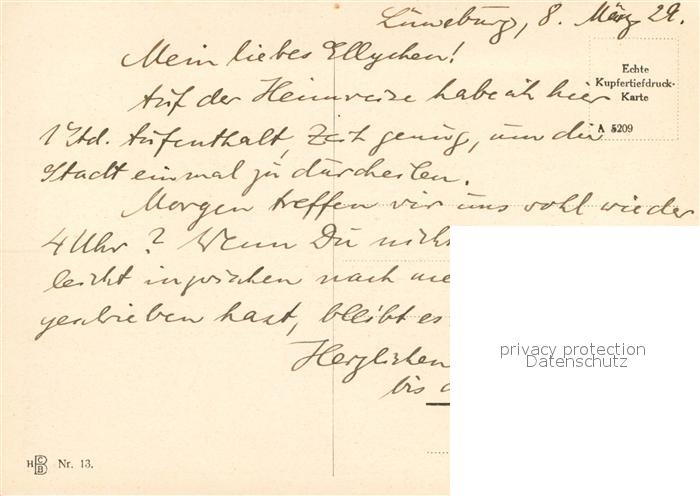 Lüneburg, 8. März 29.
Mein liebes Ellychen!
Echte
Kupfertiefdruck-
Karte
A 5209
Auf der Heimreise habe ich hier
1 Std. Aufenthalt, Zeit genug, um die
Stadt einmal zu durcheilen.
Morgen treffen wir uns wohl wieder
4 Uhr? Wenn Du nich
leicht inzwischen nach
geschrieben hast, bleibt es
Herzlichen
bis
privacy protection
Datenschutz
HCB Nr. 13.